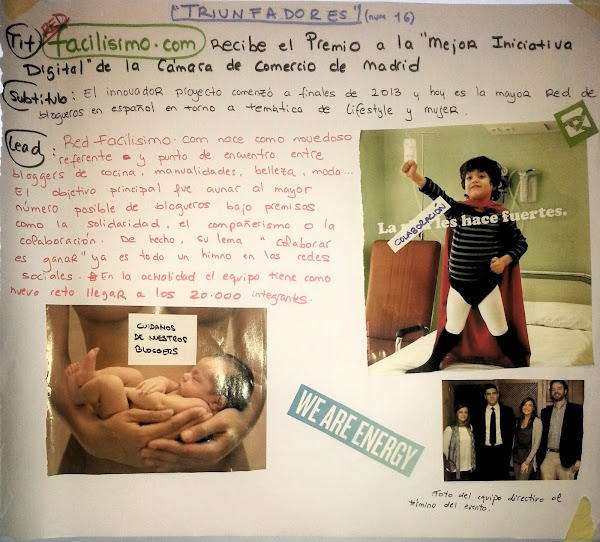 "TRIUNFADORES" (num 16)
Tit RED facilisimo.com Recibe el Premio a la "Mejor Iniciativa
Digital" de la Cámara de Comercio de Madrid
Subtítulo: El innovador proyecto comenzó a finales de 2013 y hoy es la mayor red de
blogueros en español en torno a temática de Lifestyle y mujer.
Lead: Red Facilisimo.com nace como novedoso
referente y punto de encuentro entre
bloggers de cocina, manualidades, belleza, moda...
El objetivo principal fue aunar al mayor
número posible de blogueros bajo premisas
como la solidaridad, el compañerismo o la
colaboración. De hecho, su lema "Colaborar
es ganar" ya es todo un himno en las redes
sociales. En la actualidad el equipo tiene como
nuevo reto llegar a los 20.000 integrantes.
La les hace fuertes.
COLABORACIÓN
CUIDAMOS
DE NUESTROS
BLOGGERS
WE ARE ENERGY
Foto del equipo directivo al
término del evento.